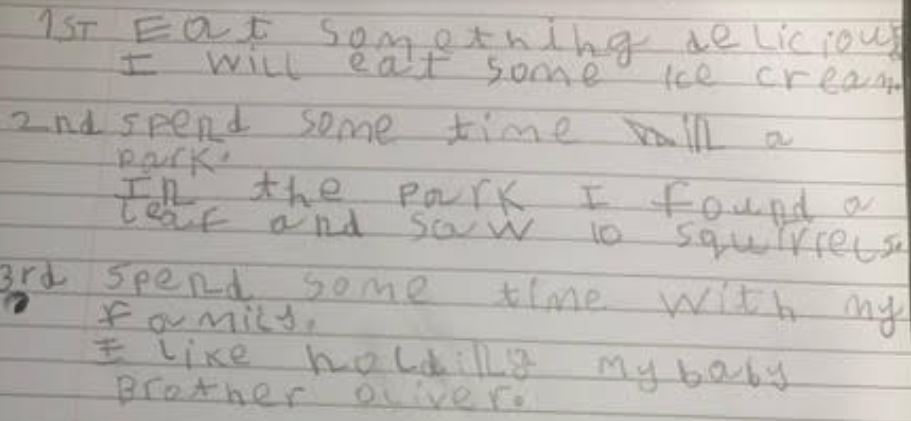 1ST Eat something delicious
I will eat some ice cream.
2nd spend some time in a
park.
In the park I found a
leaf and saw 10 squirrels.
3rd spend some time with my
family.
I like holding my baby
Brother oliver.